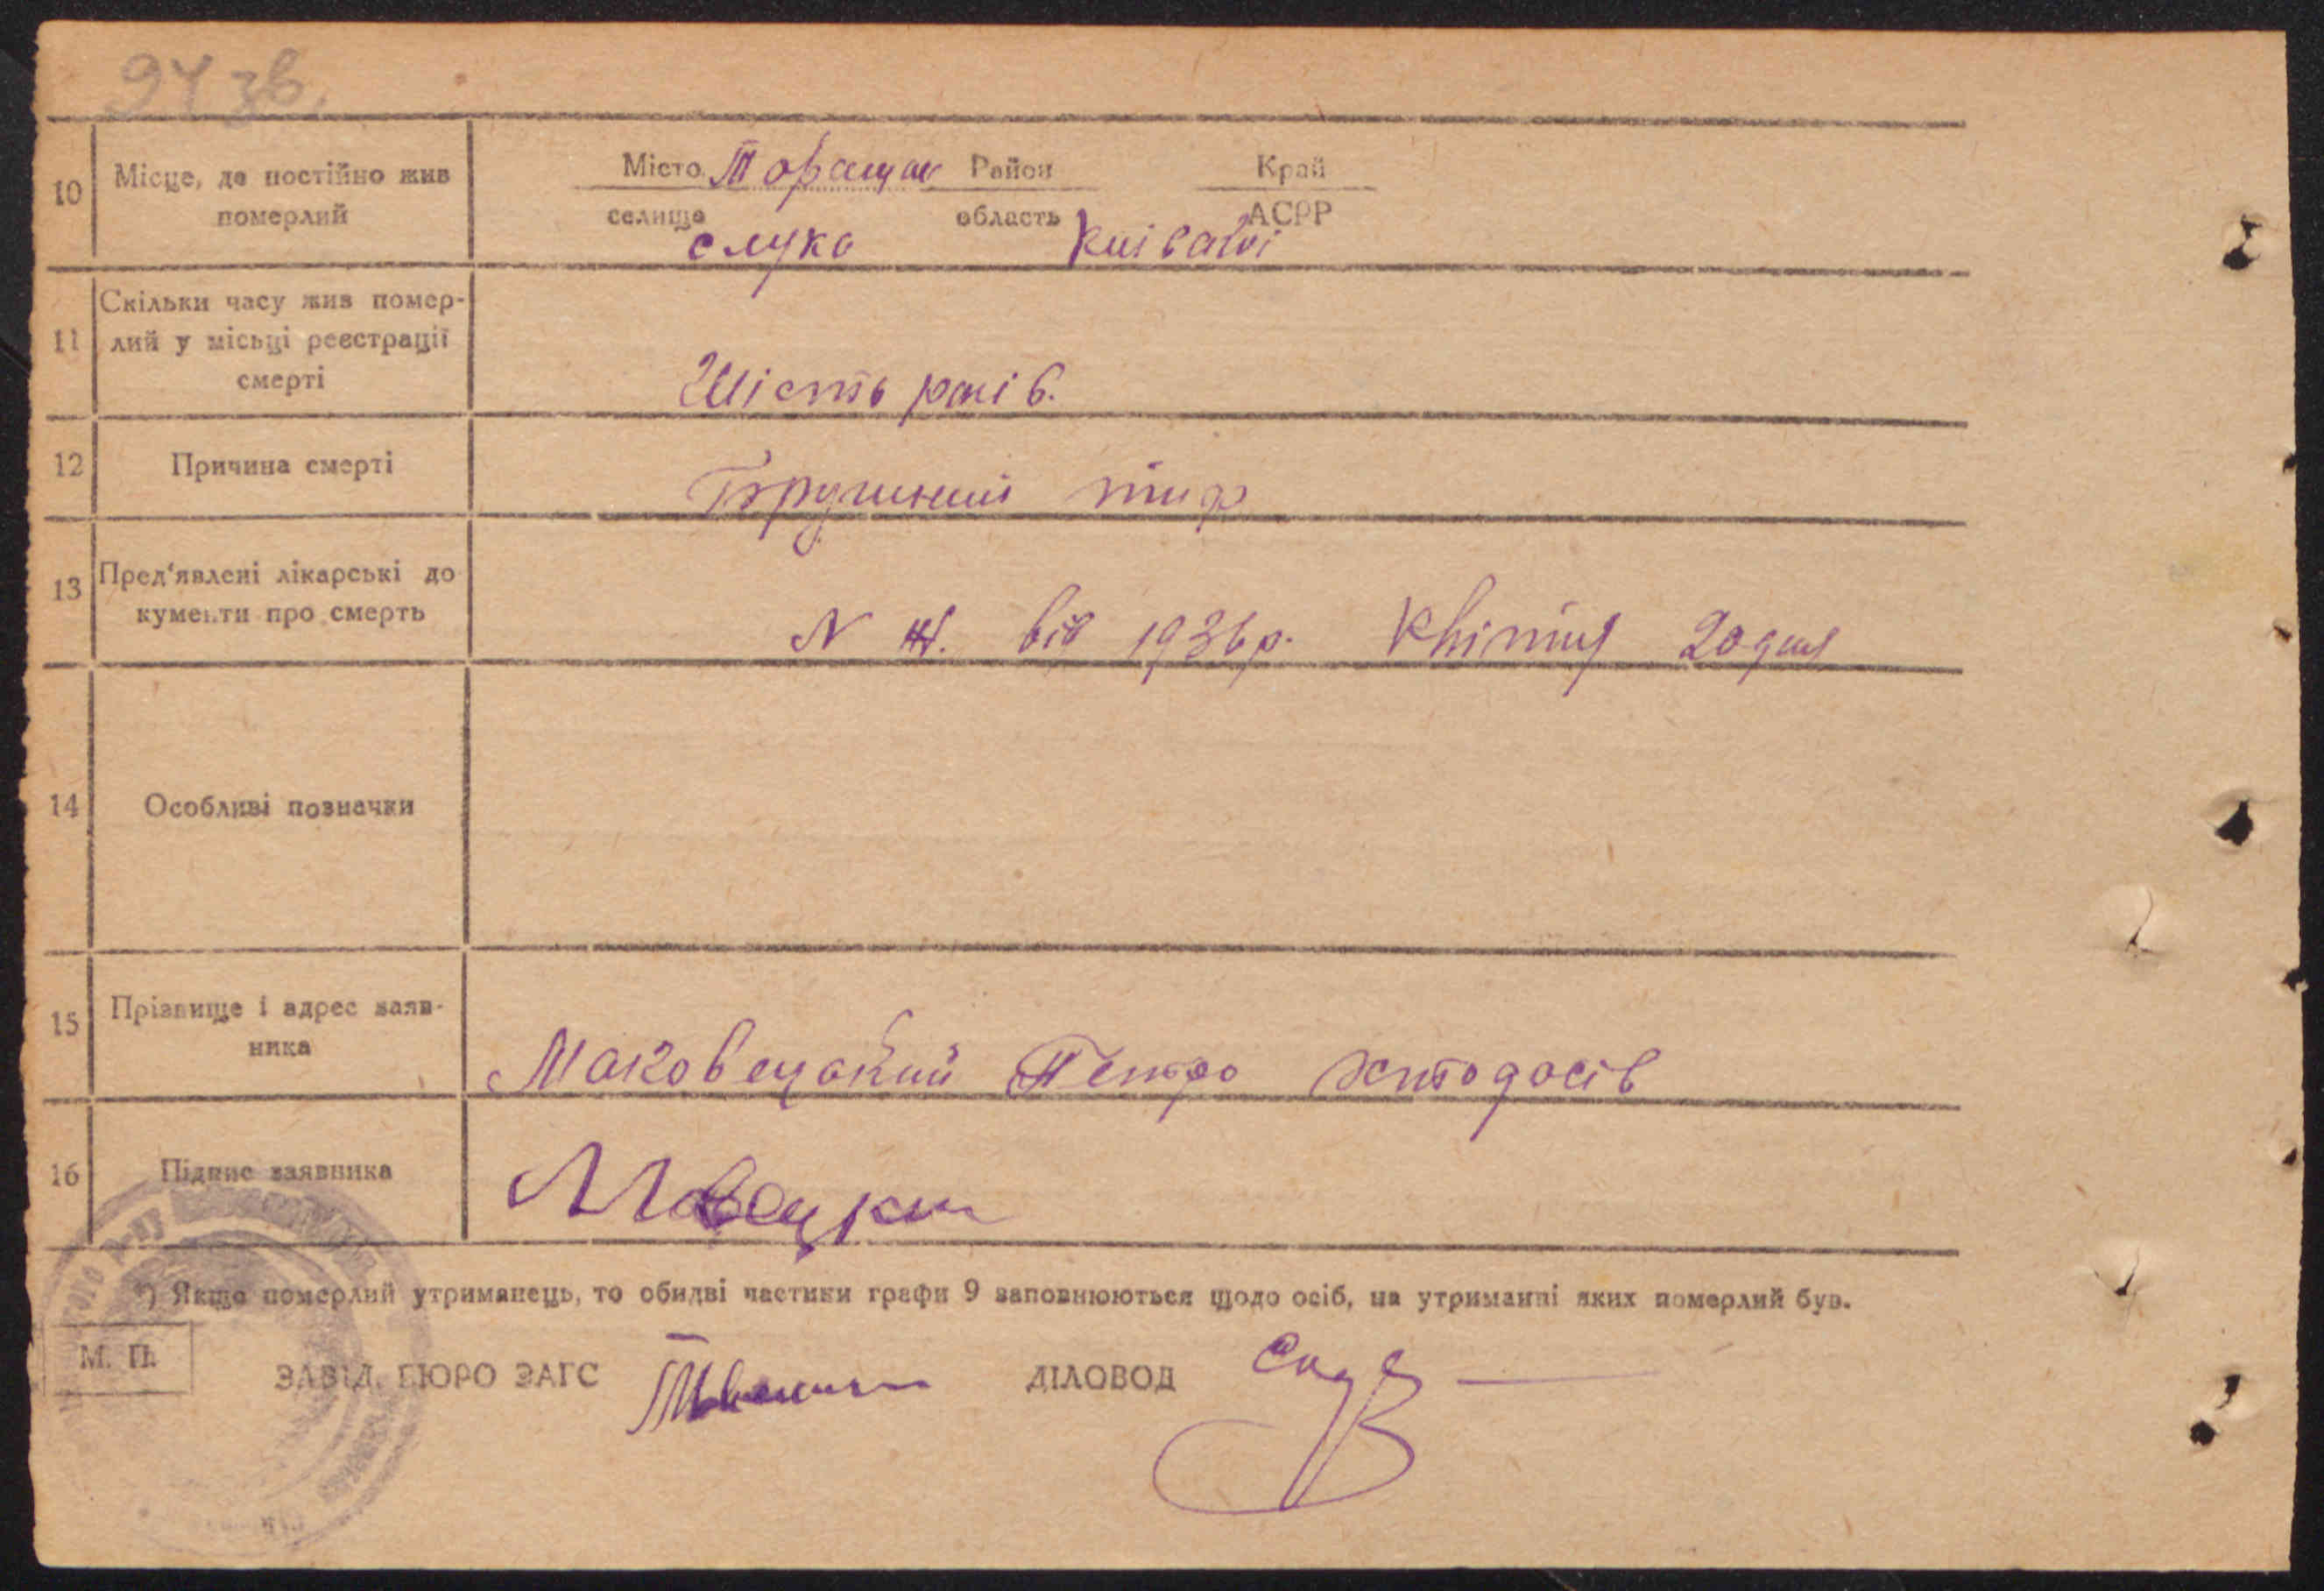 97 зв.
10 Місце, де постійно жив померлий
Місто Тараща Район Край
селище область АСРР
слука Киівської
11 Скільки часу жив помер-
лий у місьці реєстрації
смерті
Шість років.
12 Причина смерті
Брушний тиф
13 Пред'явлені лікарські до
кументи про смерть
N від 1936 р. Квітня 20 дня
14 Особливі позначки
15 Прізвище і адрес заяв-
ника
Маковецький Петро
16 Підпис заявника
*) Якщо померлий утриманець, то обидві частини графи 9 заповнюються щодо осіб, на утриманні яких померлий був.
М. П.
ЗАВІД. БЮРО ЗАГС ДІЛОВОД